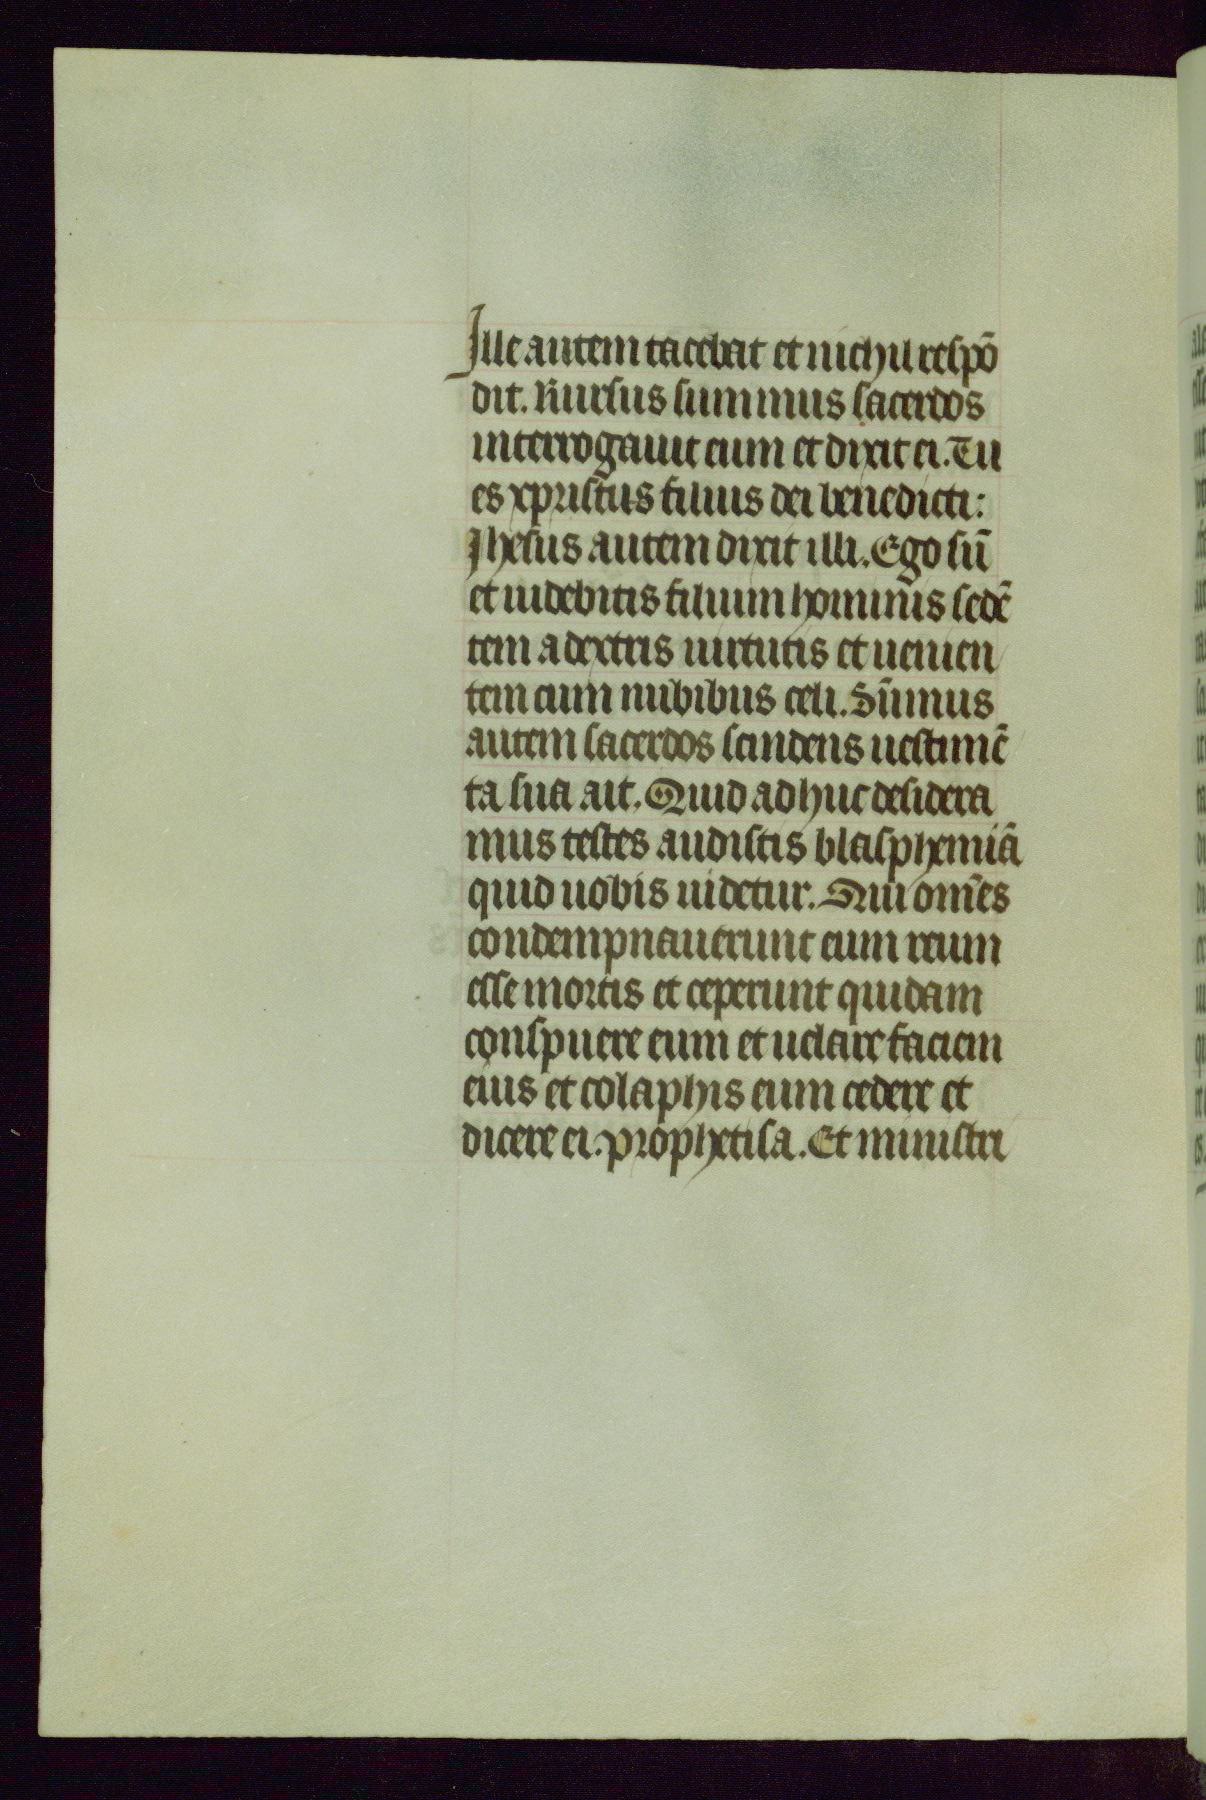 Ille autem tacebat et nichil respō
dit. Rursus summus sacerdos
interrogauit eum et dixit ei. Tu
es xpristus filius dei benedicti:
Jhesus autem dixit illi. Ego sū
et uidebitis filium hominis sedē
tem a dextris uirtutis et uenien
tem cum nubibus celi. Sūmus
autem sacerdos scindens uestimē
ta sua ait. Quid adhuc desidera
mus testes audistis blasphemiā
quid uobis uidetur. Qui om̄es
condempnauerunt eum reum
esse mortis et ceperunt quidam
conspuere eum et uelare faciem
eius et colaphis eum cedere et
dicere ei. prophetisa. Et ministri